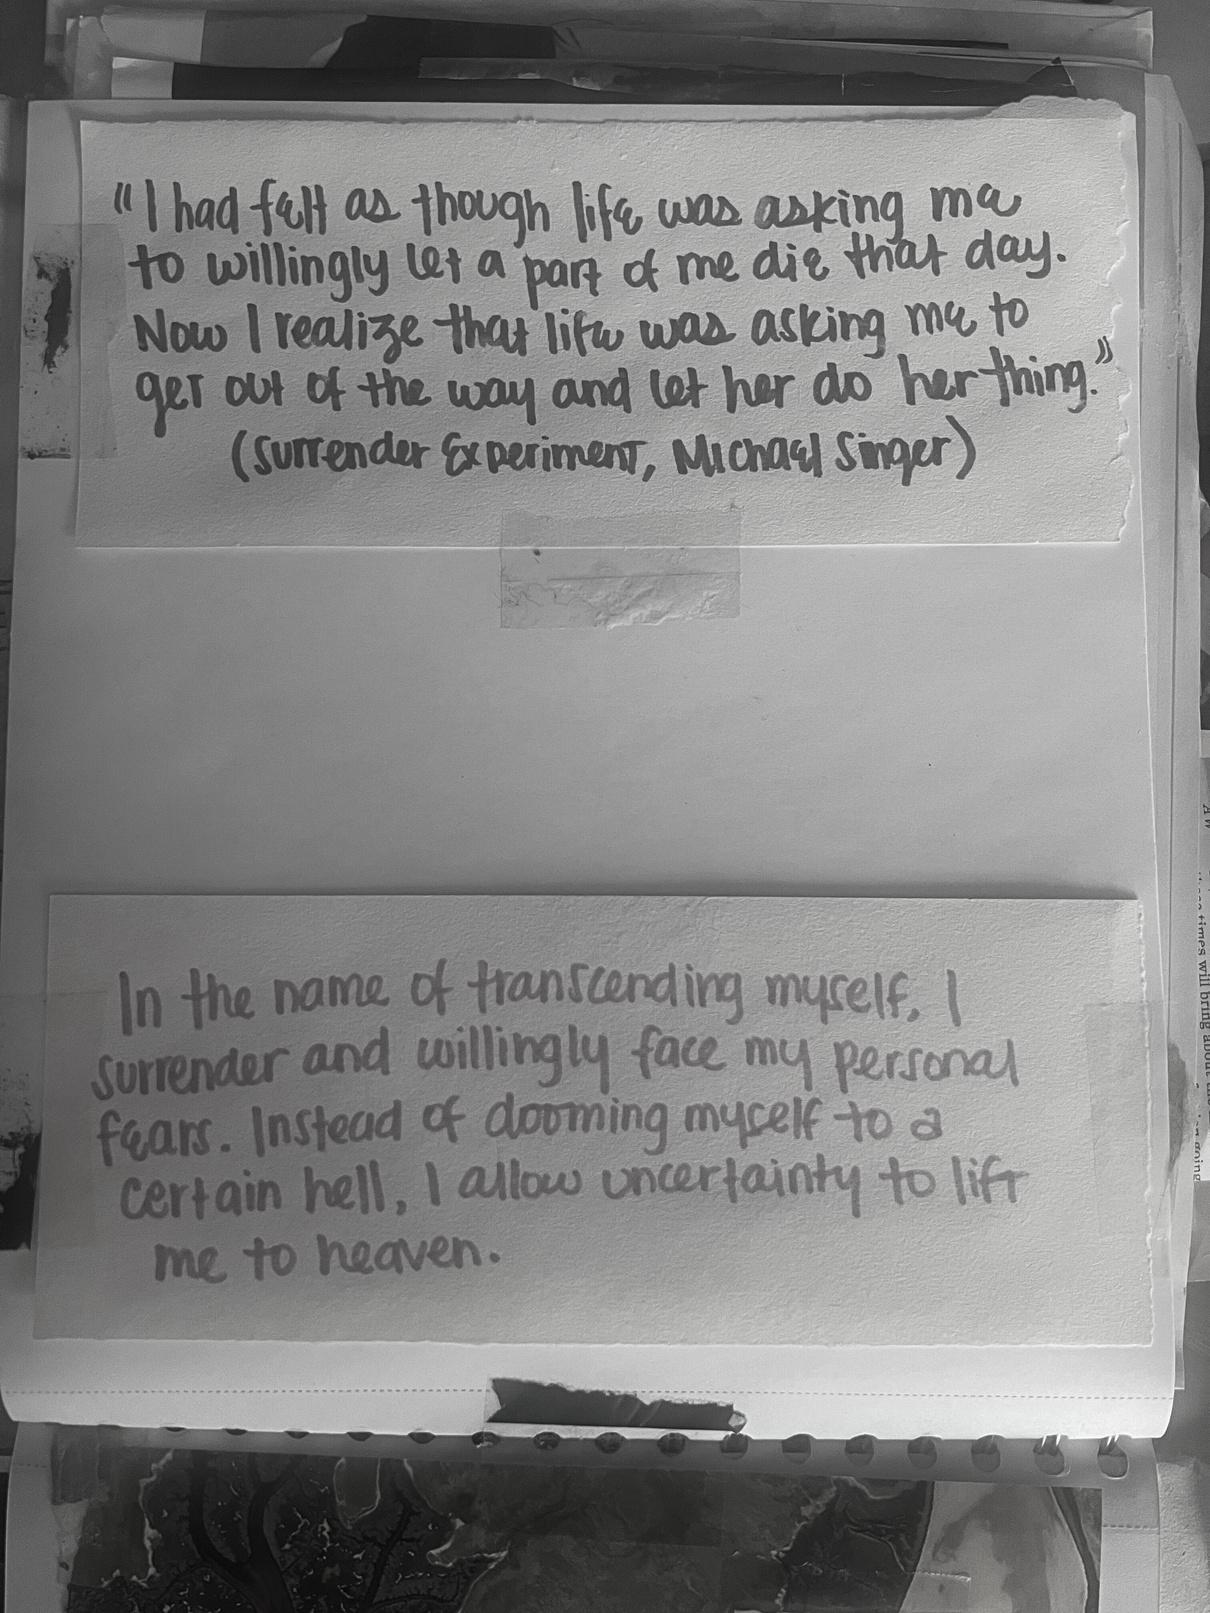 "I had felt as though life was asking me
to willingly let a part of me die that day.
Now I realize that life was asking me to
get out of the way and let her do her thing."
(Surrender Experiment, Michael Singer)
In the name of transcending myself, I
surrender and willingly face my personal
fears. Instead of dooming myself to a
certain hell, I allow uncertainty to lift
me to heaven.
times will bring about
going